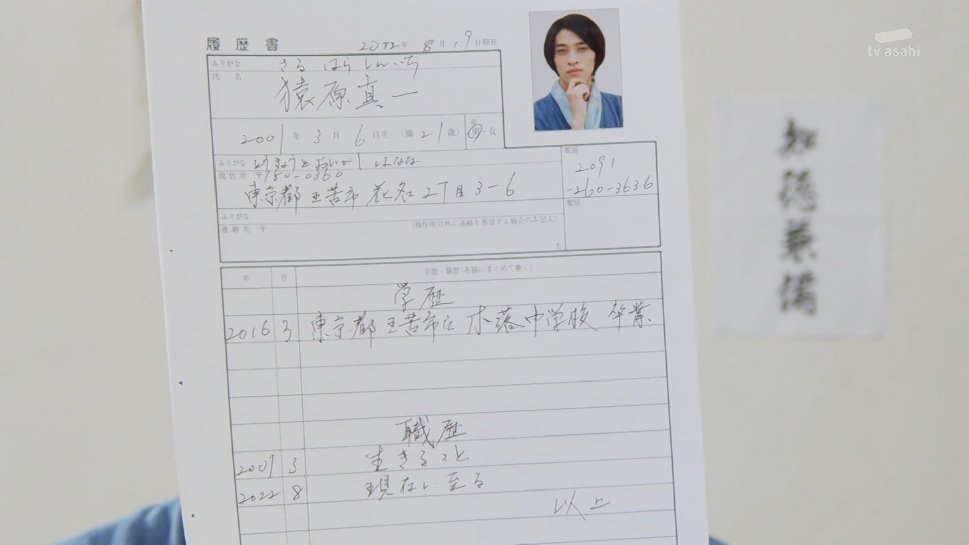 tv asahi
履歴書
2022年 8月 19日現在
ふりがな さるはらしんいち
氏名 猿原真一
2001年 3月 6日生 (満21歳) 男・女
ふりがな
現住所 〒180-0360
東京都王苦市花名2丁目3-6
電話
2091
-260-3636
ふりがな
電話
連絡先 〒
(現住所以外に連絡を希望する場合のみ記入)
方
年 月 学歴 職歴(各別にまとめて書く)
学歴
2016 3 東京都王苦市立木落中学校 卒業
職歴
2001 3 生きること
2022 8 現在に至る
以上
知徳兼備